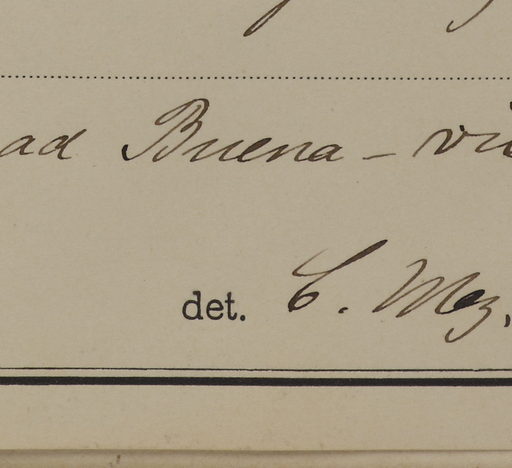 ad Buena-vi
det. C. Mez.